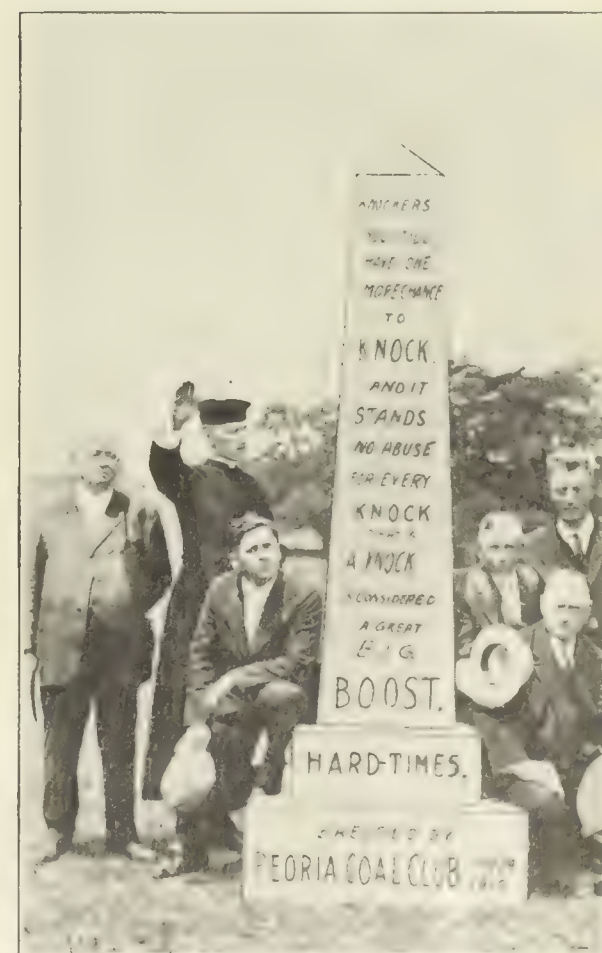 KNOCKERS
HAVE ONE
MORE CHANCE
TO
KNOCK.
AND IT
STANDS
NO ABUSE
FOR EVERY
KNOCK
A KNOCK
CONSIDERED
A GREAT
BIG
BOOST.
HARD-TIMES.
ERECTED BY
PEORIA COAL CLUB